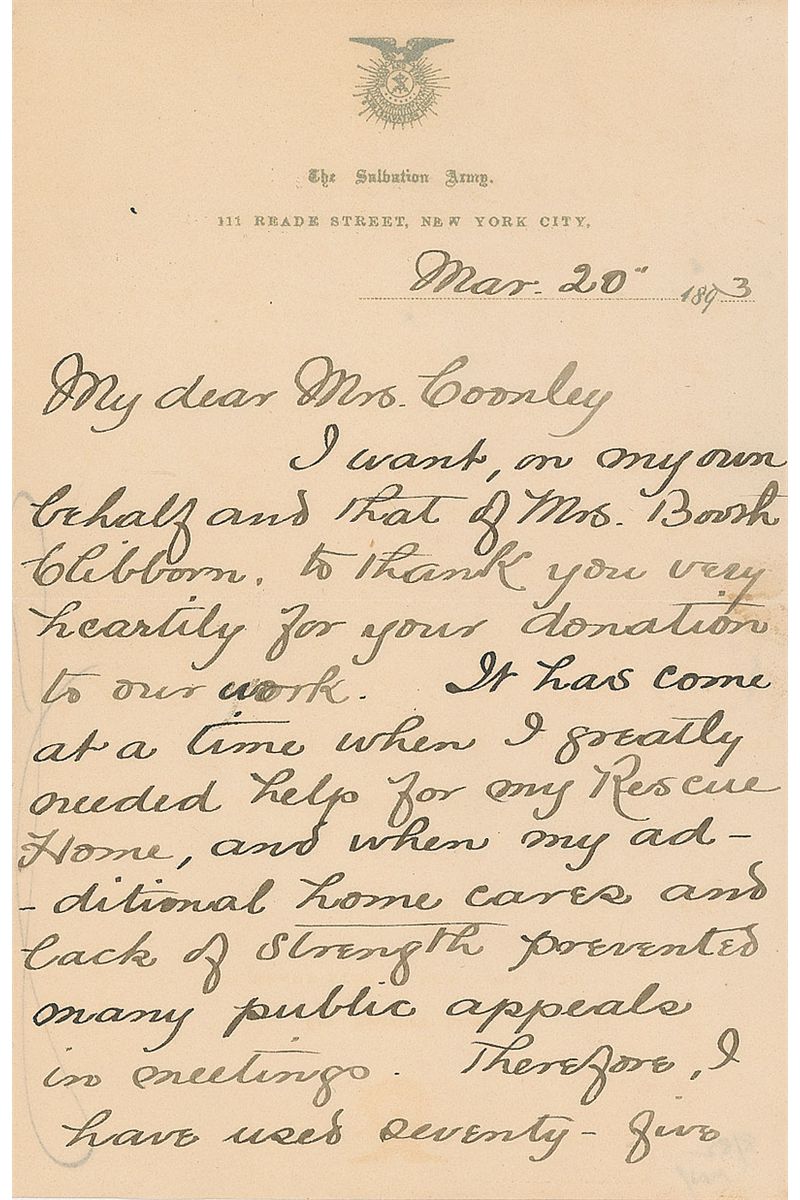 The Salvation Army.
111 READE STREET, NEW YORK CITY,
Mar. 20" 1893
My dear Mrs. Coonley
I want, on my own
behalf and that of Mrs. Booth
Clibborn, to thank you very
heartily for your donation
to our work. It has come
at a time when I greatly
needed help for my Rescue
Home, and when my ad-
-ditional home cares and
lack of strength prevented
many public appeals
in meetings. Therefore, I
have used seventy-five